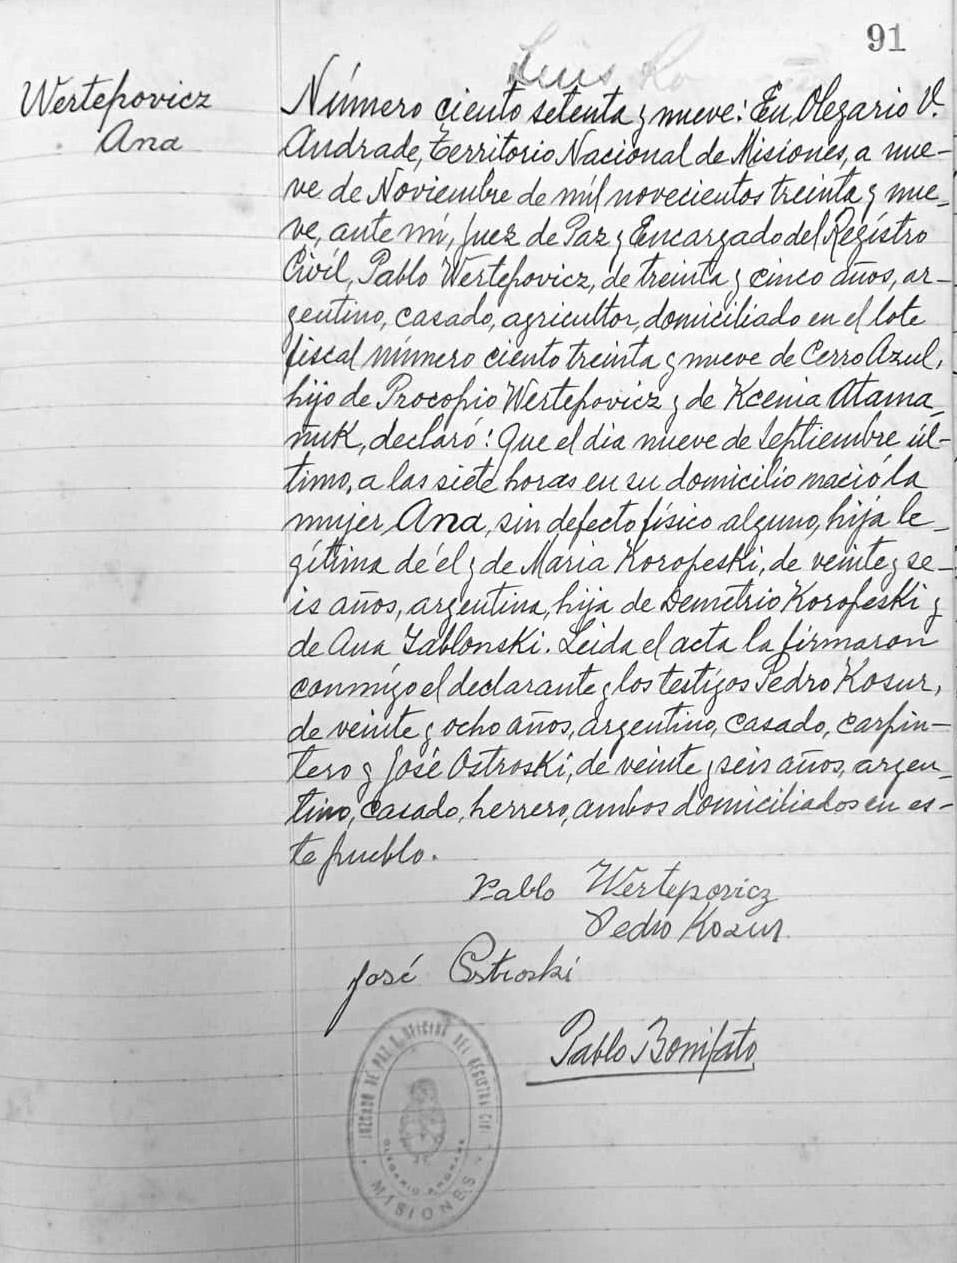 91
Luis
Wertepovicz
Ana
Número ciento setenta y nueve: En Olegario V.
Andrade, Territorio Nacional de Misiones, a nue-
ve de Noviembre de mil novecientos treinta y nue-
ve, ante mí, Juez de Paz y Encargado del Registro
Civil, Pablo Wertepovicz, de treinta y cinco años, ar-
gentino, casado, agricultor, domiciliado en el lote
fiscal número ciento treinta y nueve de Cerro Azul,
hijo de Procopio Wertepovicz y de Kcenia Atama-
ñuk, declaró: Que el dia nueve de Septiembre úl-
timo, a las siete horas en su domicilio nació la
mujer Ana, sin defecto físico alguno, hija le-
gítima de él y de Maria Koropeski, de veinte y se-
is años, argentina, hija de Demetrio Koropeski y
de Ana Zablonski. Leida el acta la firmaron
conmigo el declarante y los testigos Pedro Kosur,
de veinte y ocho años, argentino, casado, carpin-
tero y José Ostroski, de veinte y seis años, argen-
tino, casado, herrero, ambos domiciliados en es-
te pueblo.
Pablo Wertepovicz
Pedro Kozur
José Ostroski
Pablo Bonifato
JUZGADO DE PAZ Y OFICINA DEL REGISTRO CIVIL
OLEGARIO ANDRADE
MISIONES